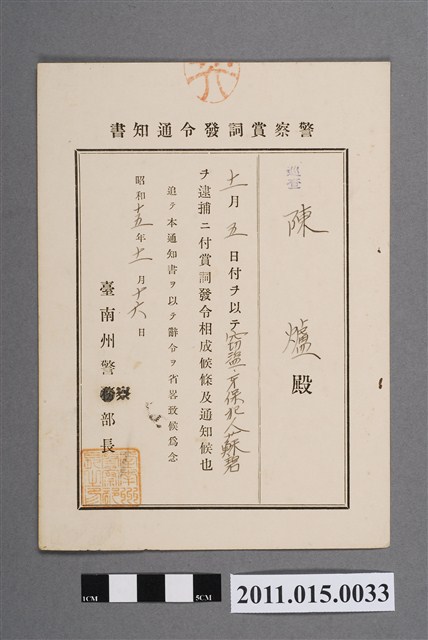 警察賞詞發令通知書
巡查
陳爐殿
十一月五日付ヲ以テ窃盜
ヲ逮捕ニ付賞詞發令相成候條及通知候也
追テ本通知書ヲ以テ辭令ヲ省畧致候爲念
昭和十五年十一月十六日
臺南州警察部長
1CM
5CM
2011.015.0033